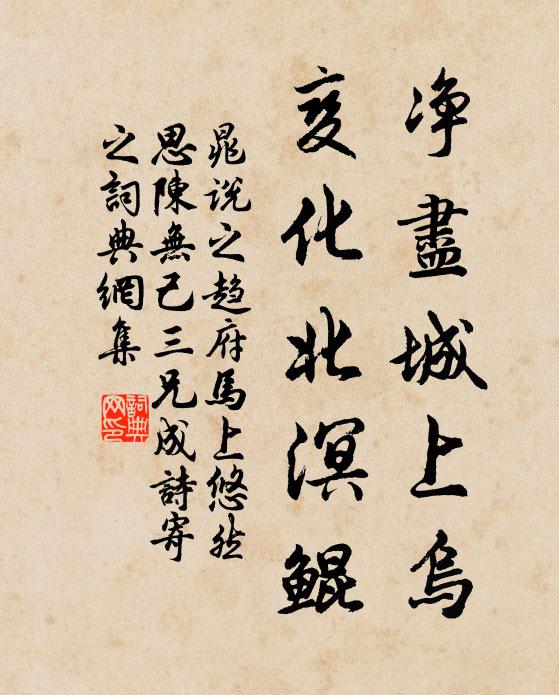 净盡城上烏
变化北溟鯤
晁说之趋府馬上悠然
思陳無己三兄成詩寄
之詞典網集
詞典網印